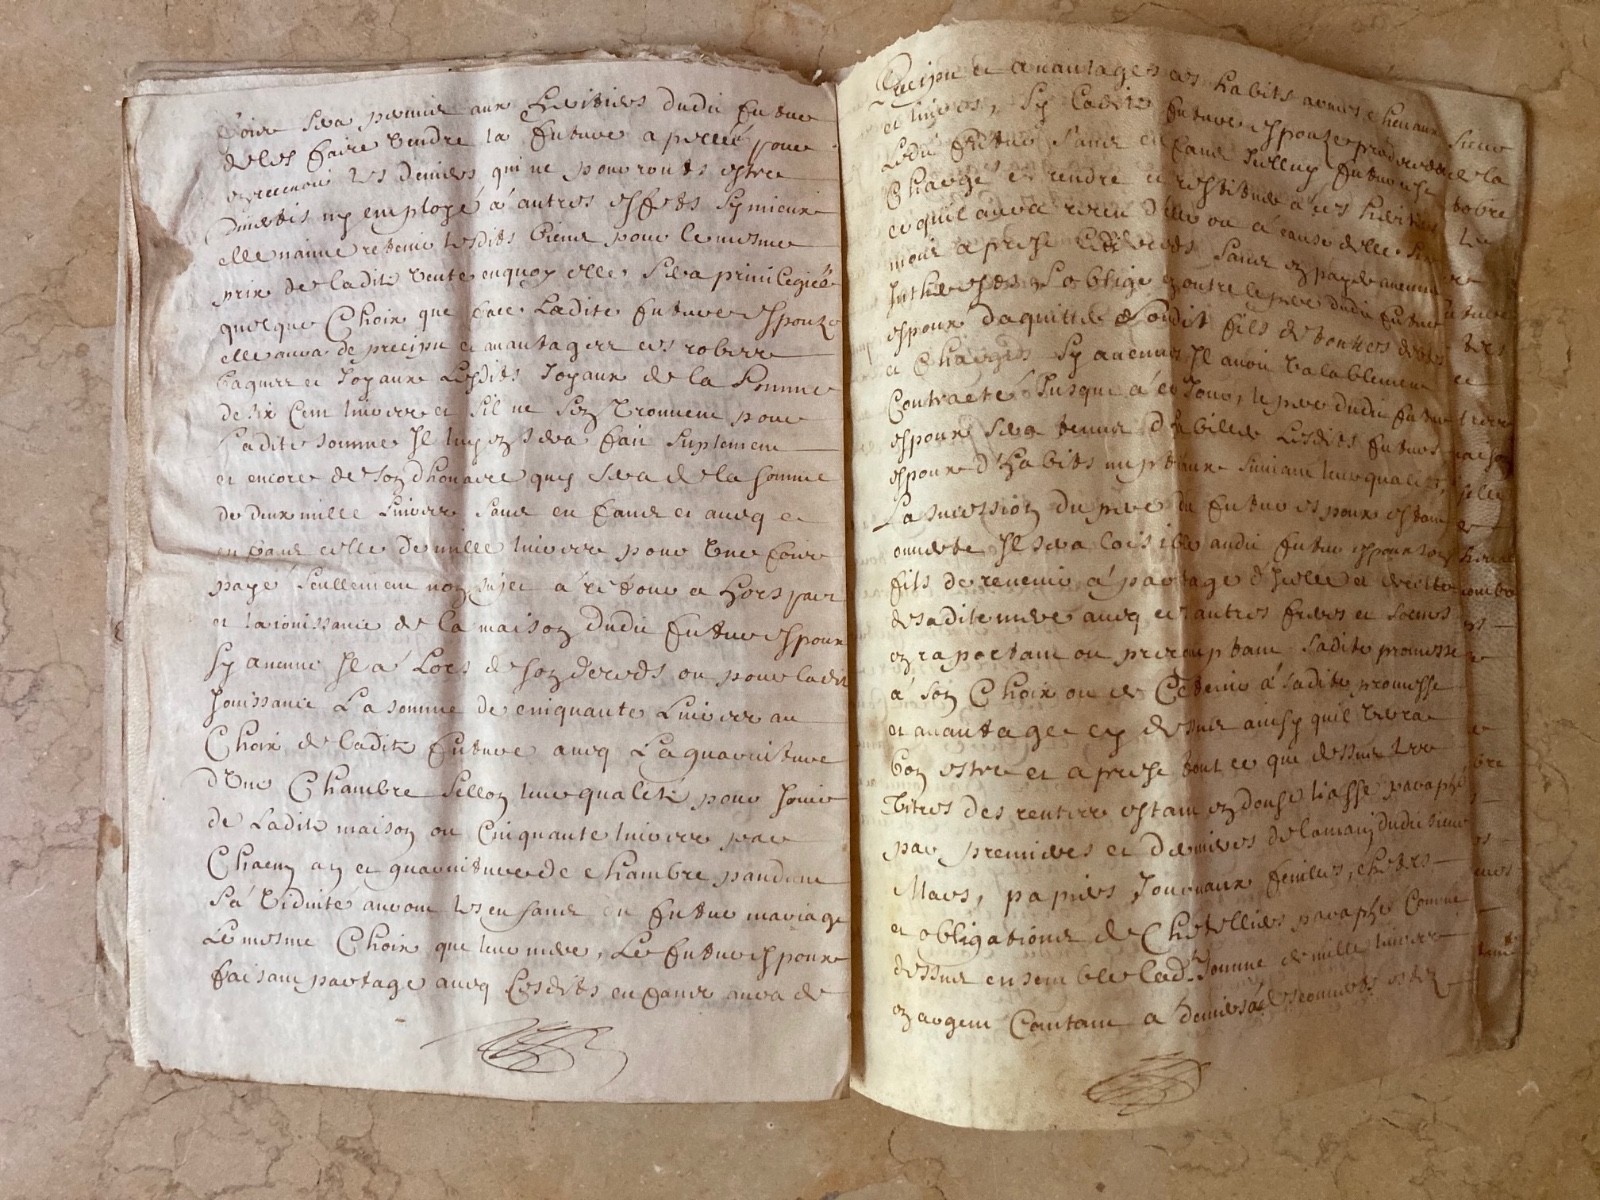 foire sera permis aux heritiers dudit futur
de les faire vendre la future apellée pour
en recevoir les deniers qui ne pourront estre
divertis ny employé á autres effets sy mieux
elle n'aime retenir lesdits biens pour le mesme
prix de ladite vente enquoy elle sera privilegiée
quelque Choix que face Ladite future Espouze
elle aura de preciput et avantages ces robes
bagues et Joyaux Lesdits Joyaux de la somme
de six Cent livres et s'il ne s'en trouvent pour
Ladite somme Il luy en sera fait suplement
et encore de son dhouaire quy sera de la somme
de deux mille Livres sans enfans et avecq
enfans celle de mille livres pour une foire
payé seullement non sujet á retour et hors part
et la jouissance de la maison dudit futur Espoux
sy aucune Il á Lors de son deceds ou pour ladite
Jouissance La somme de cinquante Livres au
Choix de ladite future avecq La garniture
d'une Chambre sellon leur qualité pour Jouir
de Ladite maison ou Cinquante livres par
Chacun an et garniture de chambre pandant
sá viduité auront les enfans du futur mariage
Le mesme Choix que leur mere, Le futur Espoux
faisant partage avecq lesdits enfans aura de
Preciput et avantages ces habits armes chevaux
et livres, sy Ladite future espouze predecede
Ledit futur sans enfans Icelluy futur est
Chargé de rendre et restituer á ces heritiers
ce qu'il aura receu d'elle ou á cause d'elle six
mois apres le deceds sans en payer aucuns
Intherests, s'oblige en outre le pere dudit futur
espoux d'aquitter sondit fils de touttes dettes
et Charges sy aucunes Il avoit valablement
Contracté Jusque á ce Jour, le pere dudit futur
espoux sera tenus d'habiller Lesdits futurs
espoux d'habits nuptiaux suivant leur qualité,
La sucession du pere du futur espoux estant
ouverte Il sera loisible audit futur espoux son
fils de revenir á partage d'Icelle et de celle
de sadite mere avecq ces autres freres et soeurs
en raportant ou precomptant sadite promesse
á son Choix ou de Ce tenir á sadite promesse
et avantage cy dessus ainsy quil verra
bon estre et apres tout ce que dessus les
titres des rentes estant en douse liasse paraphé
par premieres et dernieres de la main dudit sieur
Mars, papiers Journaux feuilles,
et obligations de Chetelliers paraphé Comme
dessus ensemble lad. somme de mille livres
en argent Contant